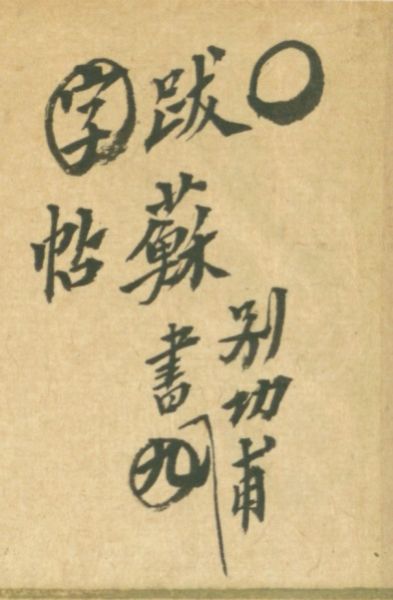 〇別功甫
跋蘇書九
字帖